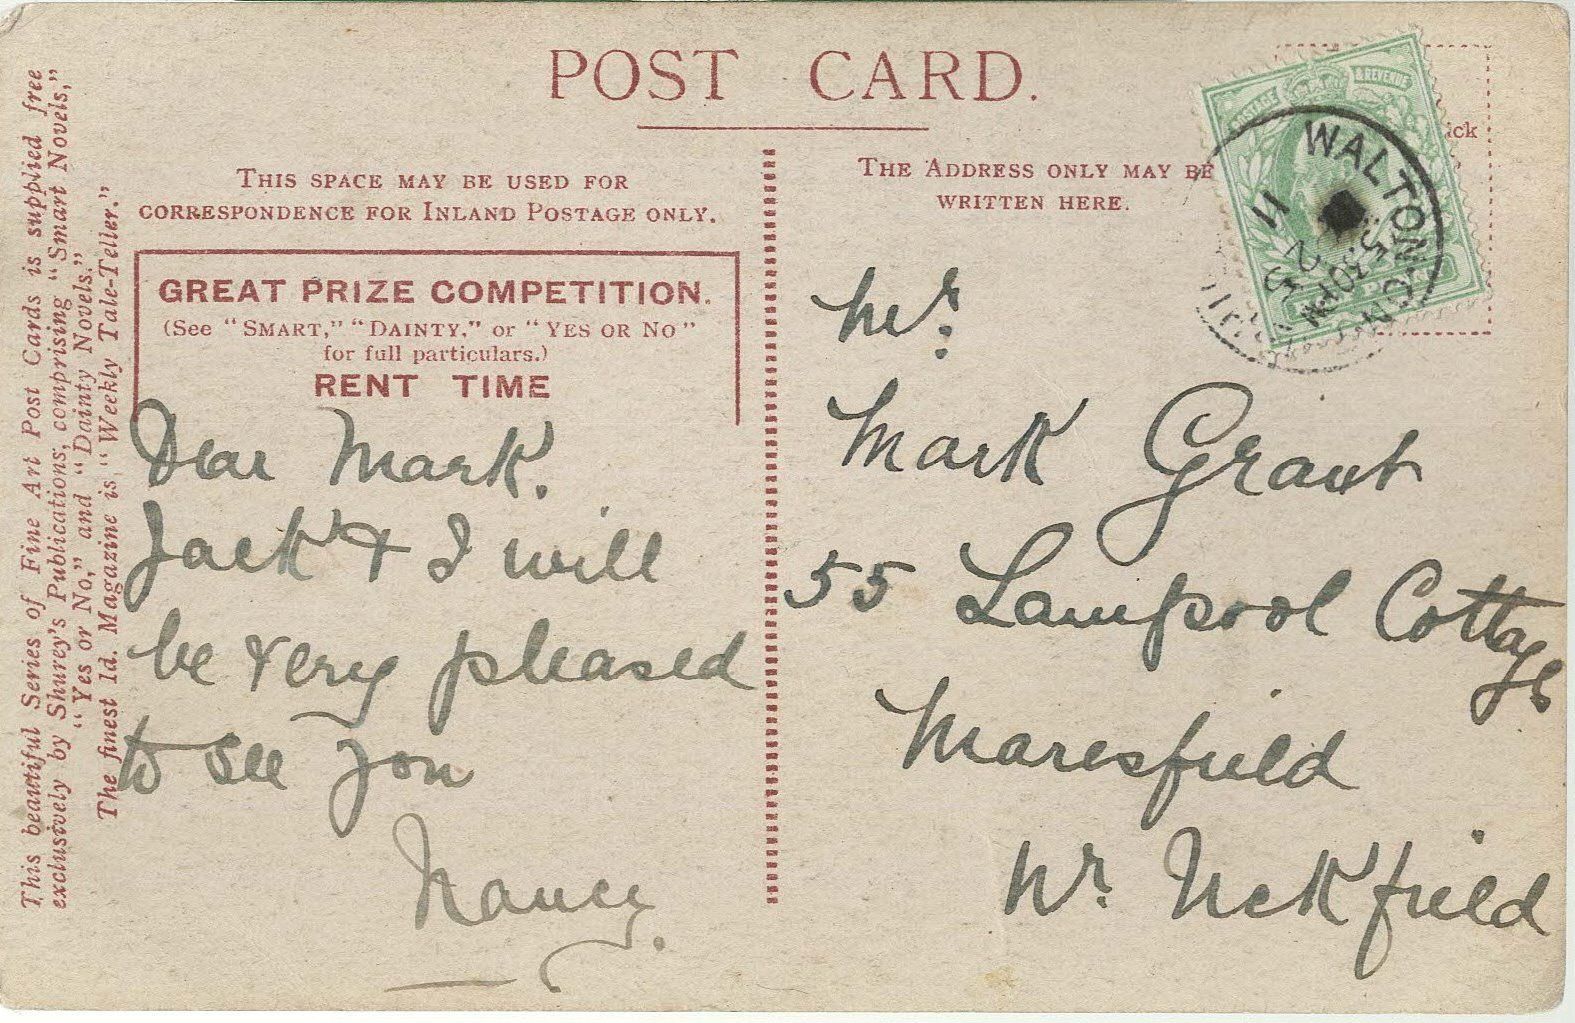 POST CARD.
This beautiful Series of Fine Art Post Cards is supplied free
exclusively by Shurey's Publications, comprising "Smart Novels,"
"Yes or No," and "Dainty Novels."
The finest 1d. Magazine is "Weekly Tale-Teller."
THIS SPACE MAY BE USED FOR
CORRESPONDENCE FOR INLAND POSTAGE ONLY.
GREAT PRIZE COMPETITION.
(See "SMART," "DAINTY," or "YES OR NO"
for full particulars.)
RENT TIME
Dear Mark.
Jack & I will
be very pleased
to see you
Nancy.
THE ADDRESS ONLY MAY BE
WRITTEN HERE.
POSTAGE & REVENUE
WALTON-ON
5.30PM
11
Mr.
Mark Grant
55 Lampool Cottage
Maresfield
Nr. Uckfield